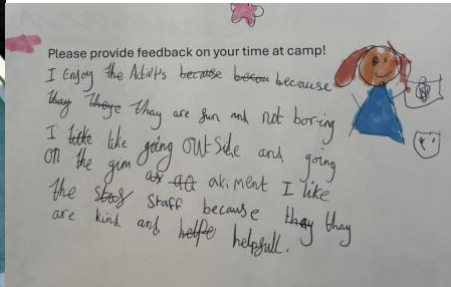 Please provide feedback on your time at camp!
I Enjoy the Adults because becau because
thay thaye thay are fun and not boring
I like like going outside and going
on the gim as aq akiment I like
the staf staff because thay thay
are kind and helfe helpfull.